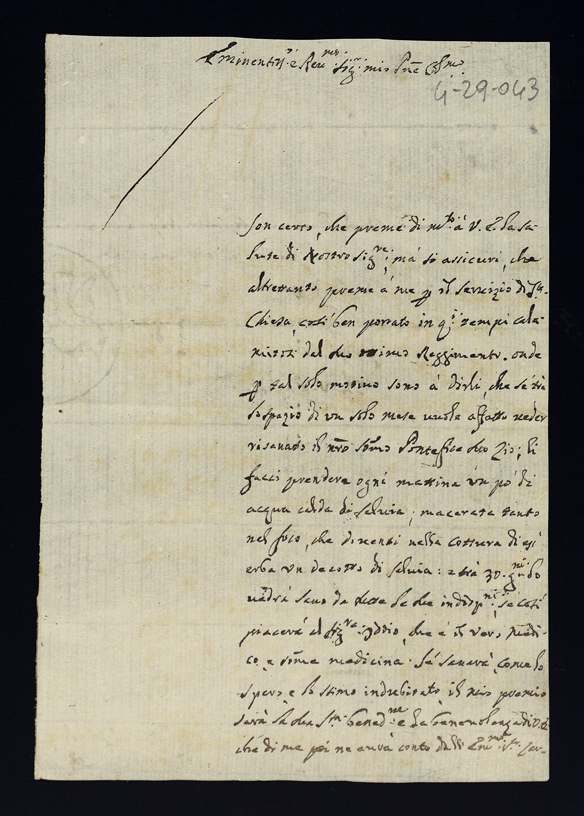 Eminentis.º e Rev.mo Sig. mio P.ne
4-29-043
Son certo, che preme di m.to à V. E. la sa-
lute di Nostro Sig.re, mà si assicuri, che
altrettanto preme à me p il servizio di S.ta
Chiesa, così ben portato in q.i tempi cala-
mitosi dal suo Reggimento. onde
p tal solo motivo sono à dirli, che se trà
lo spazio di un solo mese vuole affatto veder
risanato il nro som̃o Pontefice suo Zio, li
facci prendere ogni mattina un pò di
acqua calda di salvia, macerata tanto
nel foco, che diventi nella cottura di essa
erba un decotto di salvia: e trà 30. g.ni lo
vedrà sano da tutte le sue indisp.ni, se così
piacerà al Sig.re Iddio, che è il vero Medi-
co, e som̃a medicina. Se sanerà, come lo
spero, e lo stimo indubitato, il mio premio
sarà la sua S.ta bened.ne e la benevolenza di V. E.
che di me poi ne avrà conto dall'